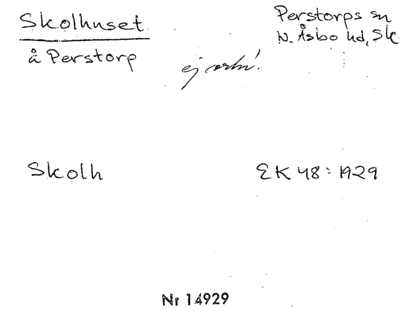 Skolhuset
å Perstorp
Perstorps sn
N. Åsbo hd, Sk
ej
Skolh
EK 48: 1929
Nr 14929